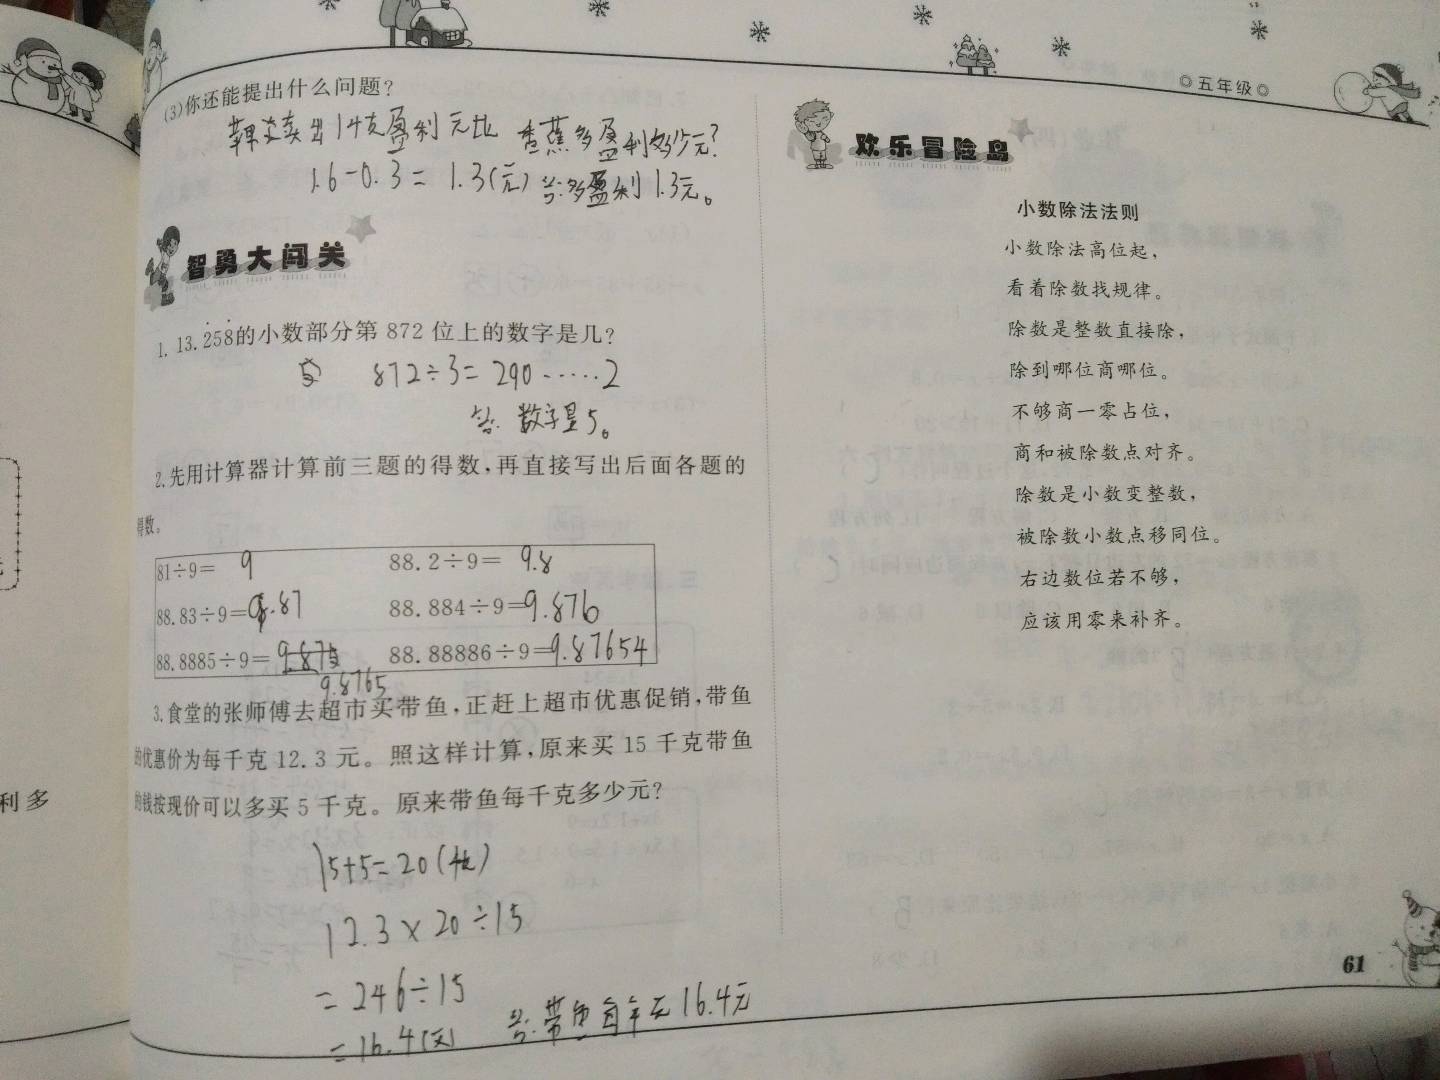 ◎五年级◎
(3)你还能提出什么问题?
苹果卖出14支盈利元比 香蕉多盈利多少元?
1.6-0.3= 1.3(元) 答:多盈利1.3元。
智勇大闯关
1. 13.2̇58̇的小数部分第 872 位上的数字是几?
872÷3=290……2
答: 数字是5。
2.先用计算器计算前三题的得数,再直接写出后面各题的
得数。
81÷9= 9 88.2÷9= 9.8
88.83÷9=9.87 88.884÷9=9.876
88.8885÷9= 9.875 88.88886÷9=9.87654
9.8765
3.食堂的张师傅去超市买带鱼,正赶上超市优惠促销,带鱼
的优惠价为每千克 12.3 元。照这样计算,原来买 15 千克带鱼
的钱按现价可以多买 5 千克。原来带鱼每千克多少元?
15+5=20(千克)
12.3×20÷15
=246÷15
=16.4(元) 答:带鱼每千克16.4元
欢乐冒险岛
小数除法法则
小数除法高位起,
看着除数找规律。
除数是整数直接除,
除到哪位商哪位。
不够商一零占位,
商和被除数点对齐。
除数是小数变整数,
被除数小数点移同位。
右边数位若不够,
应该用零来补齐。
61
利多